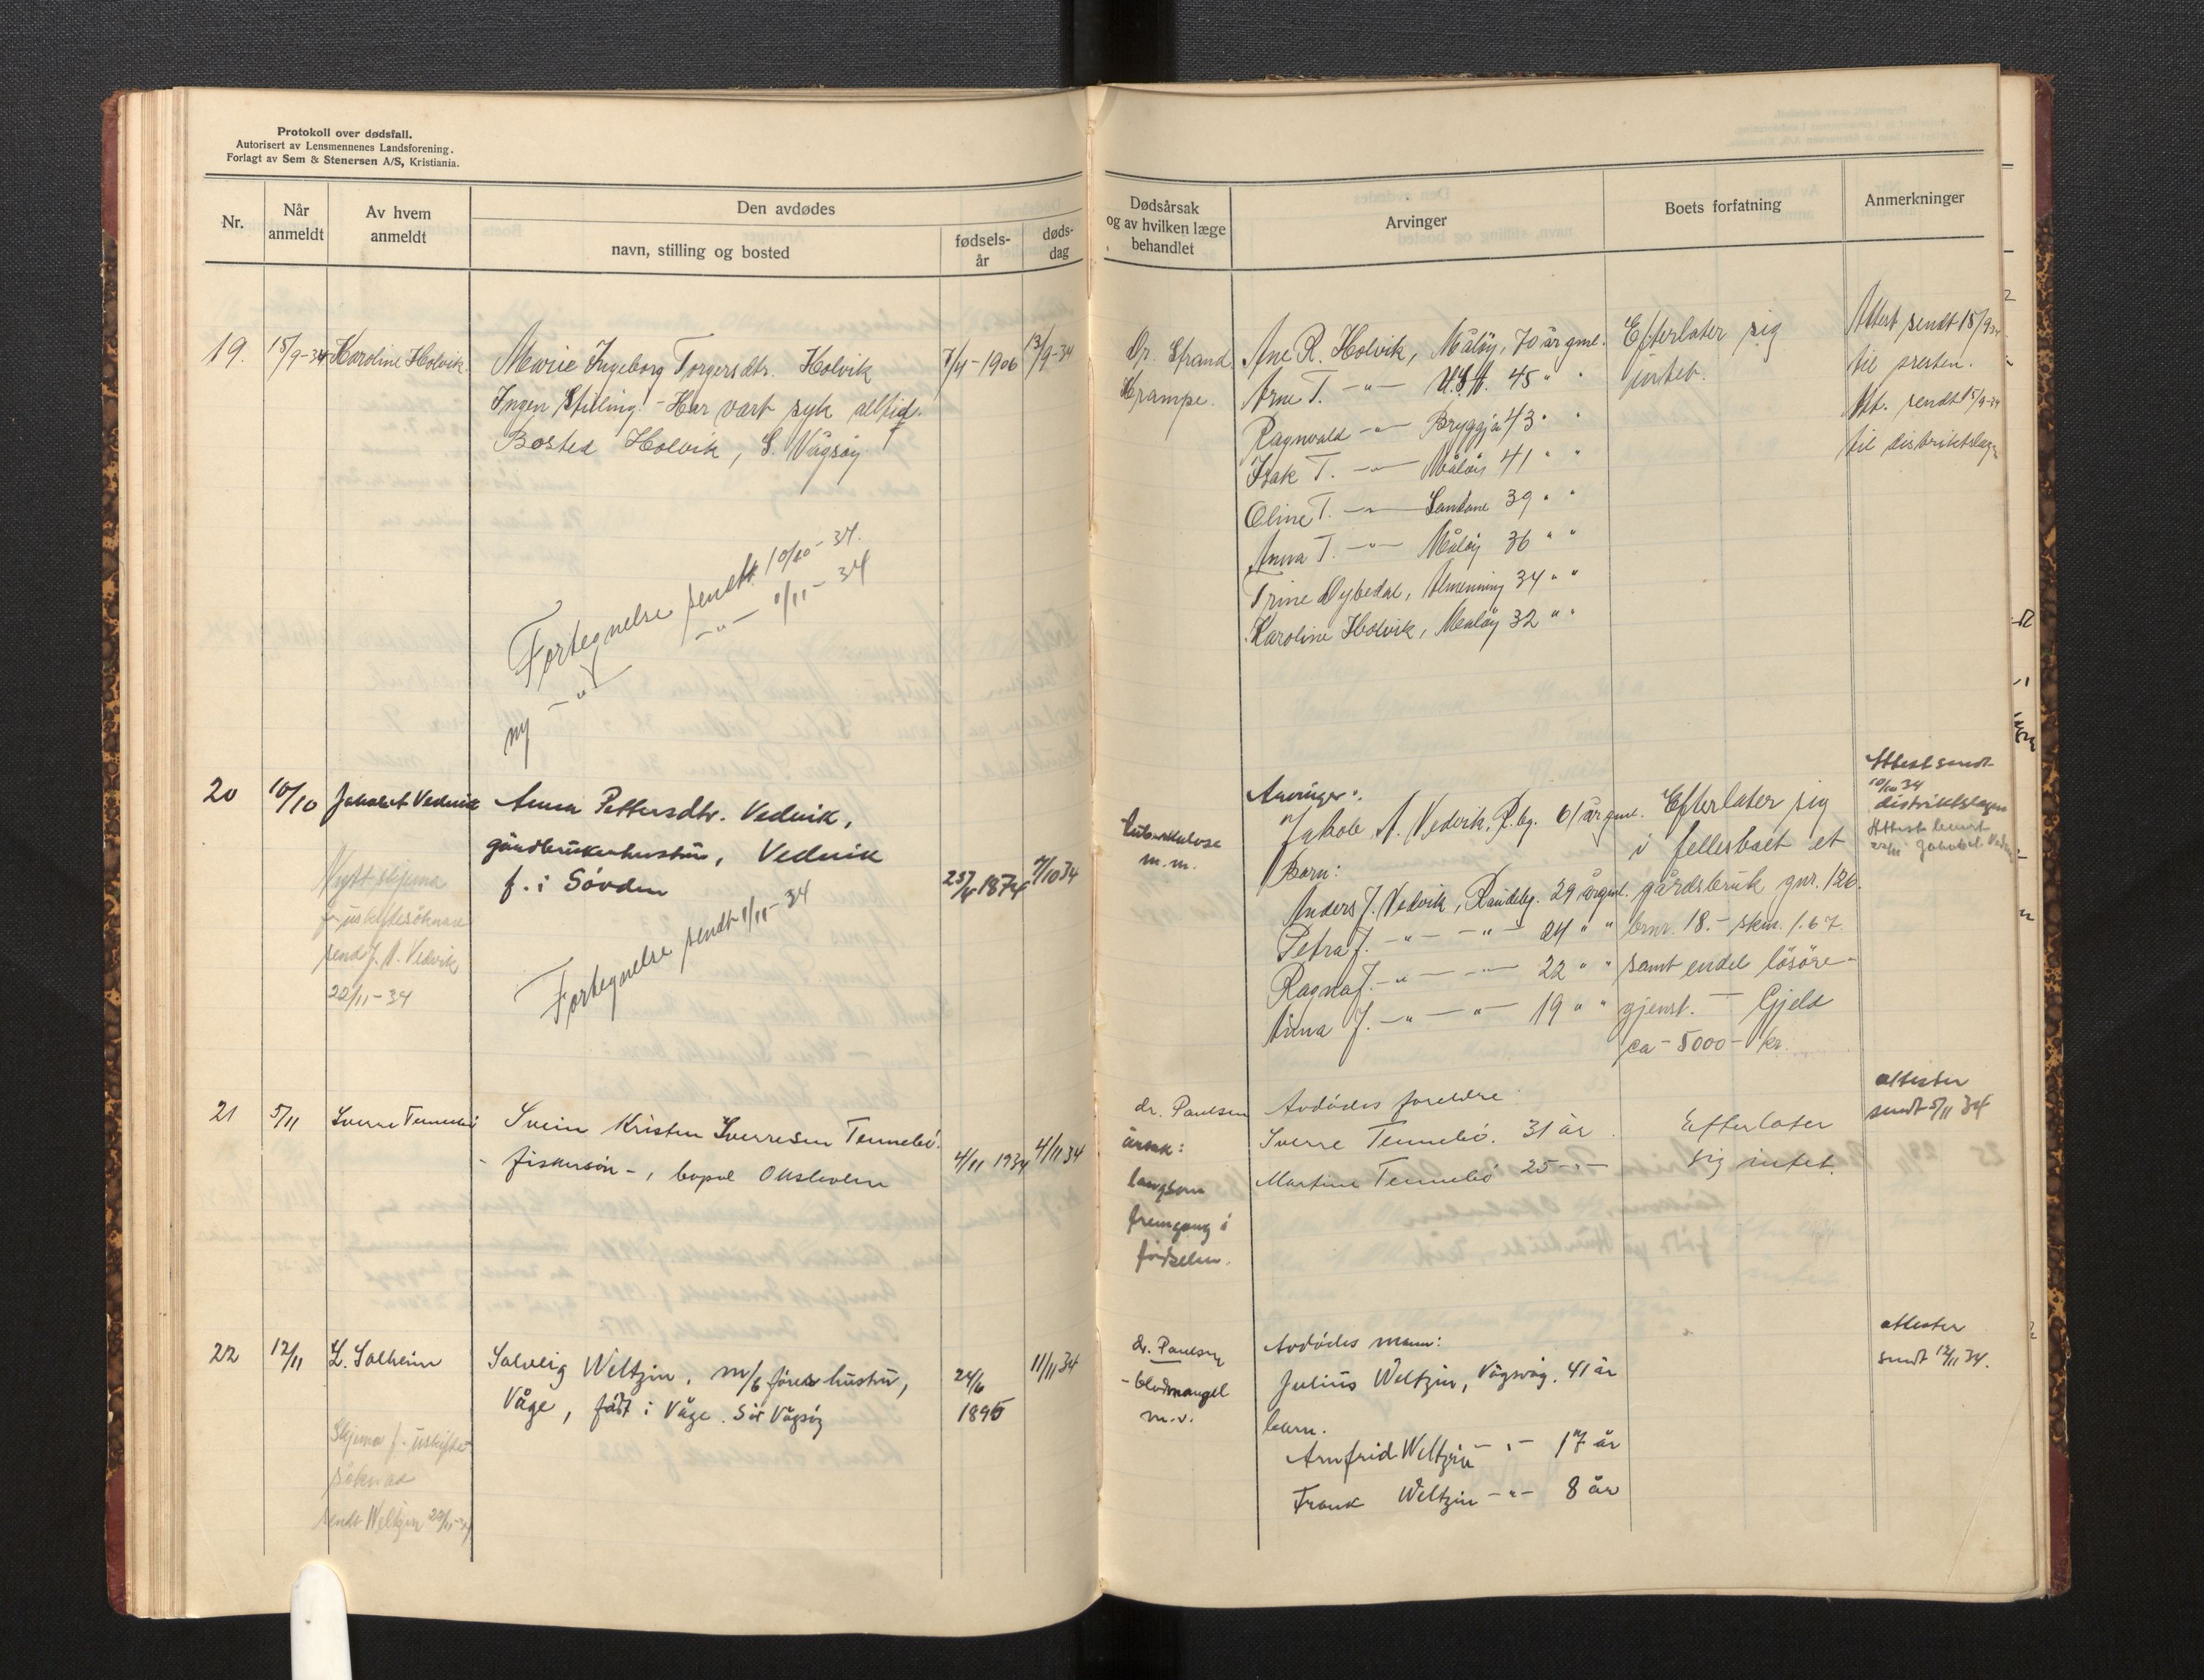 Protokoll over dødsfall.
Autorisert av Lensmennenes Landsforening.
Forlagt av Sem & Stenersen A/S, Kristiania.
Nr.
Når anmeldt
Av hvem anmeldt
Den avdødes
navn, stilling og bosted
fødsels-
år
døds-
dag
Dødsårsak
og av hvilken læge
behandlet
Arvinger
Boets forfatning
Anmerkninger
19. 15/9-34 Karoline Holvik
Marie Ingeborg Torgersdtr. Holvik
Ingen Stilling! - Har vært syk alltid.
Bosted Holvik, S. Vågsøy
7/4-1906 13/9-34
Dr. Strand
Krampe.
Ane R. Holvik, Måløy, 70 år gml.
Arne T. -"- U.S.A. 45 " "
Ragnvald -"- Bryggja 43 " "
Isak T. -"- Måløy 41 " "
Oline T. -"- Sandane 39 " "
Anna T. -"- Måløy 36 " "
Trine Dybedal, Almenning 34 " "
Karoline Holvik, Måløy 32 " "
Efterlater sig
intet.
Attest sendt 15/9 34
til presten.
Att. sendt 15/9-34
til distriktslægen
Fortegnelse sendt 10/10-34.
ny -"- -"- 1/11-34
20 10/10 Jakob A Vedvik
Anna Pettersdtr. Vedvik,
gårdbrukerhustru, Vedvik
f. i Søvden
23/4 1874 7/10 34
Nytt skjema
f. uskiftesöknad
send J. A. Vedvik
22/11-34
Fortegnelse sendt 1/11-34
tuberkulose
m.m.
Arvinger:
Jakob A. Vedvik, R.bg. 61 år gml.
Barn:
Anders J. Vedvik, Raudebg. 29 år gml.
Petra J. -"- -"- 24 " "
Ragna J. -"- -"- 22 " "
Anna J. -"- -"- 19 " "
Efterlater sig
i fellesboet et
gårdsbruk gnr. 126.
brnr. 18. - skm. 1.67.
samt endel lösöre-
gjenst. - Gjeld
ca - 5000 - kr.
Attest sendt
10/10 34
distriktslægen
21 5/11 Sverre Tennebö
Svein Kristen Sverresen Tennebö.
- fiskersön -, bopel Oksholm
4/11 1934 4/11 34
dr. Paulsen
årsak:
langsom
fremgang i
födselen.
Avdödes foreldre
Sverre Tennebö. 31 år
Martine Tennebö 25 -"-
Efterlater
sig intet.
attester
sendt 5/11 34
22 12/11 L. Solheim
Solveig Weltzin, m/b förers hustru,
Våge, födt i Våge. Sör Vågsöy
24/6
1895
11/11 34
Skjema f. uskifte-
söknad
sendt Weltzin 22/11-34
dr. Paulsen
- blodmangel
m.v.
Avdödes mann:
Julius Weltzin, Vågsvåg. 41 år
barn.
Arnfrid Weltzin -"- 17 år
Frank Weltzin -"- 8 år
attester
sendt 12/11 34.